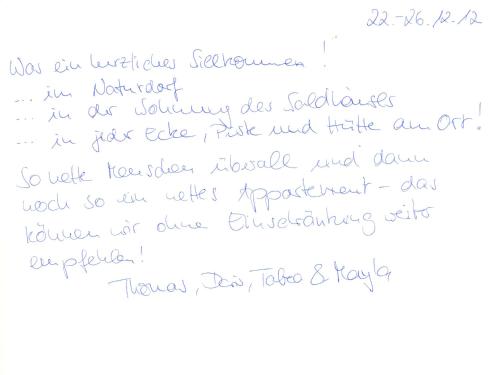 22.-26.12.12
Was ein herzliches Willkommen!
... im Naturdorf
... in der Wohnung des Waldhauses
... in jeder Ecke, Piste und Hütte am Ort!
So nette Menschen überall und dann
noch so ein nettes Appartement – das
können wir ohne Einschränkung weiter
empfehlen!
Thomas, Tabea & Mayla